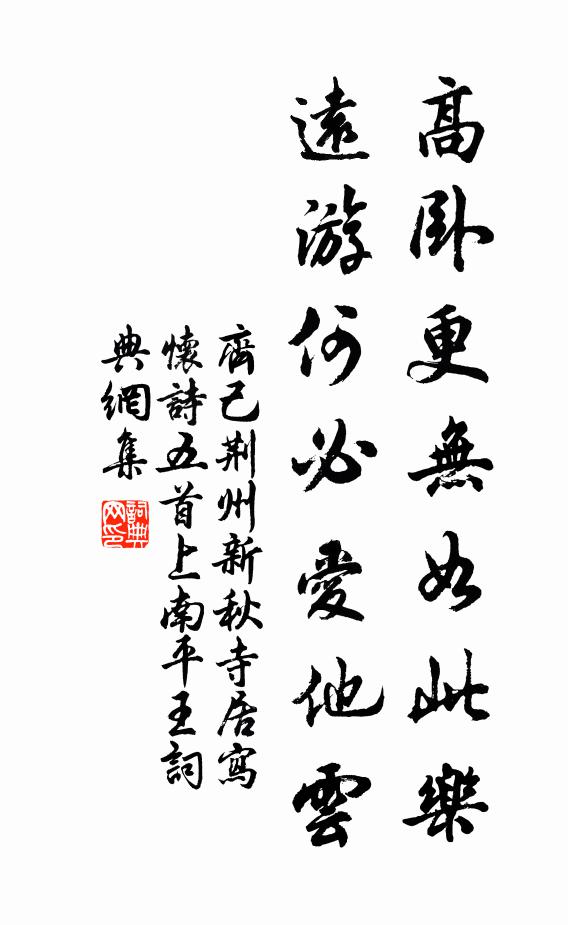 高臥更無如此樂
遠游何必愛他雲
齊己荆州新秋寺居寫
懷詩五首上南平王詞
典網集
詞典
网印